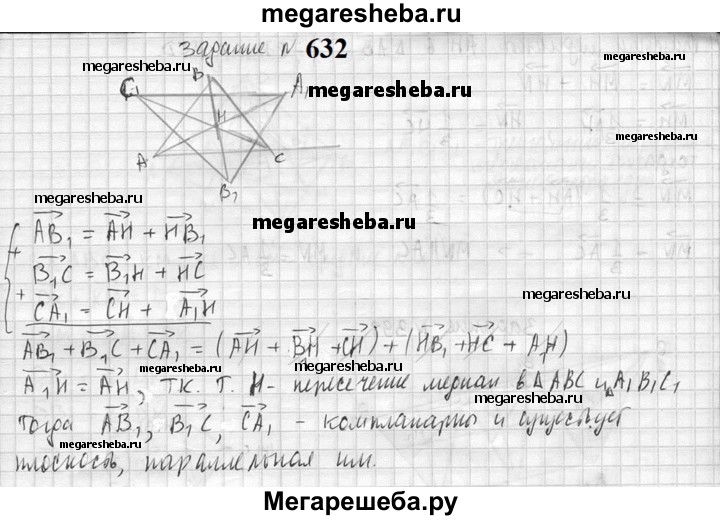 megaresheba.ru
задание № 632
megaresheba.ru
megaresheba.ru
C₁ B A₁
megaresheba.ru
H
megaresheba.ru
A C
B₁
megaresheba.ru
megaresheba.ru
AB₁ = AH + HB₁
+
B₁C = B₁H + HC
megaresheba.ru
+
CA₁ = CH + A₁H
AB₁ + B₁C + CA₁ = (AH + BH + CH) + (HB₁ + HC + A₁H)
A₁H = AH, т.к. т. H - пересечение медиан в △ABC и △A₁B₁C₁
megaresheba.ru
Тогда AB₁, B₁C, CA₁ - компланарны и существует
megaresheba.ru
плоскость, параллельная им.
megaresheba.ru
Мегарешеба.ру